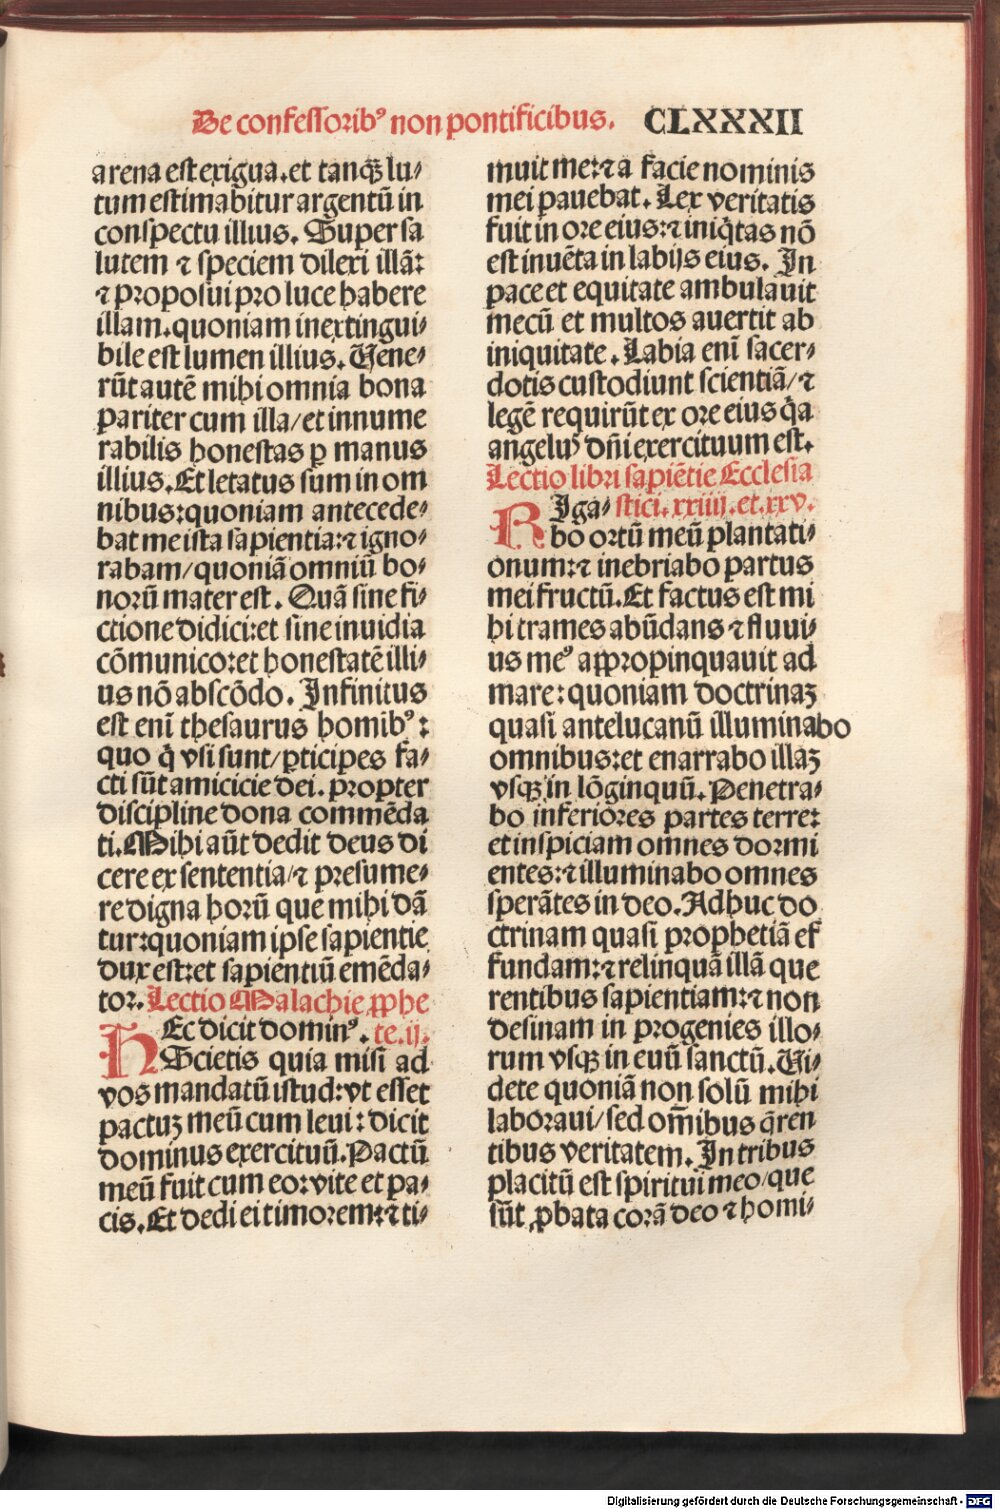 De confessoribꝰ non pontificibus. CLXXXII
arena est exigua. et tanqȝ lu⸗
tum estimabitur argentū in
conspectu illius. Super sa
lutem ⁊ speciem dilexi illā:
⁊ proposui pro luce habere
illam. quoniam inextingui⸗
bile est lumen illius. Uene⸗
rūt autē mihi omnia bona
pariter cum illa/ et innume
rabilis honestas ꝑ manus
illius. Et letatus sum in om
nibus: quoniam antecede⸗
bat me ista sapientia: ⁊ igno⸗
rabam/ quoniā omniū bo⸗
norū mater est. Quā sine fi⸗
ctione didici: et sine inuidia
cōmunico: et honestatē illi⸗
us nō abscōdo. Infinitus
est enī thesaurus homibꝰ:
quo q̇ vsi sunt/ ꝑticipes fa⸗
cti sūt amicicie dei. propter
discipline dona commēda
ti. Mihi aūt dedit deus di
cere ex sententia/ ⁊ presume⸗
re digna horū que mihi dā
tur: quoniam ipse sapientie
dux est: et sapientiū emēda⸗
tor. Lectio Malachie ꝓphe
HEc dicit dominꝰ. te. ij.
Scietis quia misi ad
vos mandatū istud: vt esset
pactuȝ meū cum leui: dicit
dominus exercituū. Pactū
meū fuit cum eo: vite et pa⸗
cis. Et dedi ei timorem: ⁊ ti⸗
muit me: ⁊ a facie nominis
mei pauebat. Lex veritatis
fuit in ore eius: ⁊ iniq̇tas nō
est inuēta in labijs eius. In
pace et equitate ambulauit
mecū et multos auertit ab
iniquitate. Labia enī sacer⸗
dotis custodiunt scientiā/ ⁊
legē requirūt ex ore eius q̄a
angelꝰ dn̄i exercituum est.
Lectio libri sapiētie Ecclesia
RIga⸗ stici. xxiiij. et. xxv.
bo ortū meū plantati⸗
onum: ⁊ inebriabo partus
mei fructū. Et factus est mi
hi trames abūdans ⁊ fluui⸗
us meꝰ appropinquauit ad
mare: quoniam doctrinaȝ
quasi antelucanū illuminabo
omnibus: et enarrabo illaȝ
vsqȝ in lōginquū. Penetra⸗
bo inferiores partes terre:
et inspiciam omnes dormi
entes: ⁊ illuminabo omnes
sperātes in deo. Adhuc do
ctrinam quasi prophetiā ef
fundam: ⁊ relinquā illā que
rentibus sapientiam: ⁊ non
desinam in progenies illo⸗
rum vsqȝ in euū sanctū. Ui⸗
dete quoniā non solū mihi
laboraui/ sed om̄ibus q̄ren
tibus veritatem. In tribus
placitū est spiritui meo/ que
sūt ꝓbata corā deo ⁊ homi⸗
Digitalisierung gefördert durch die Deutsche Forschungsgemeinschaft - DFG